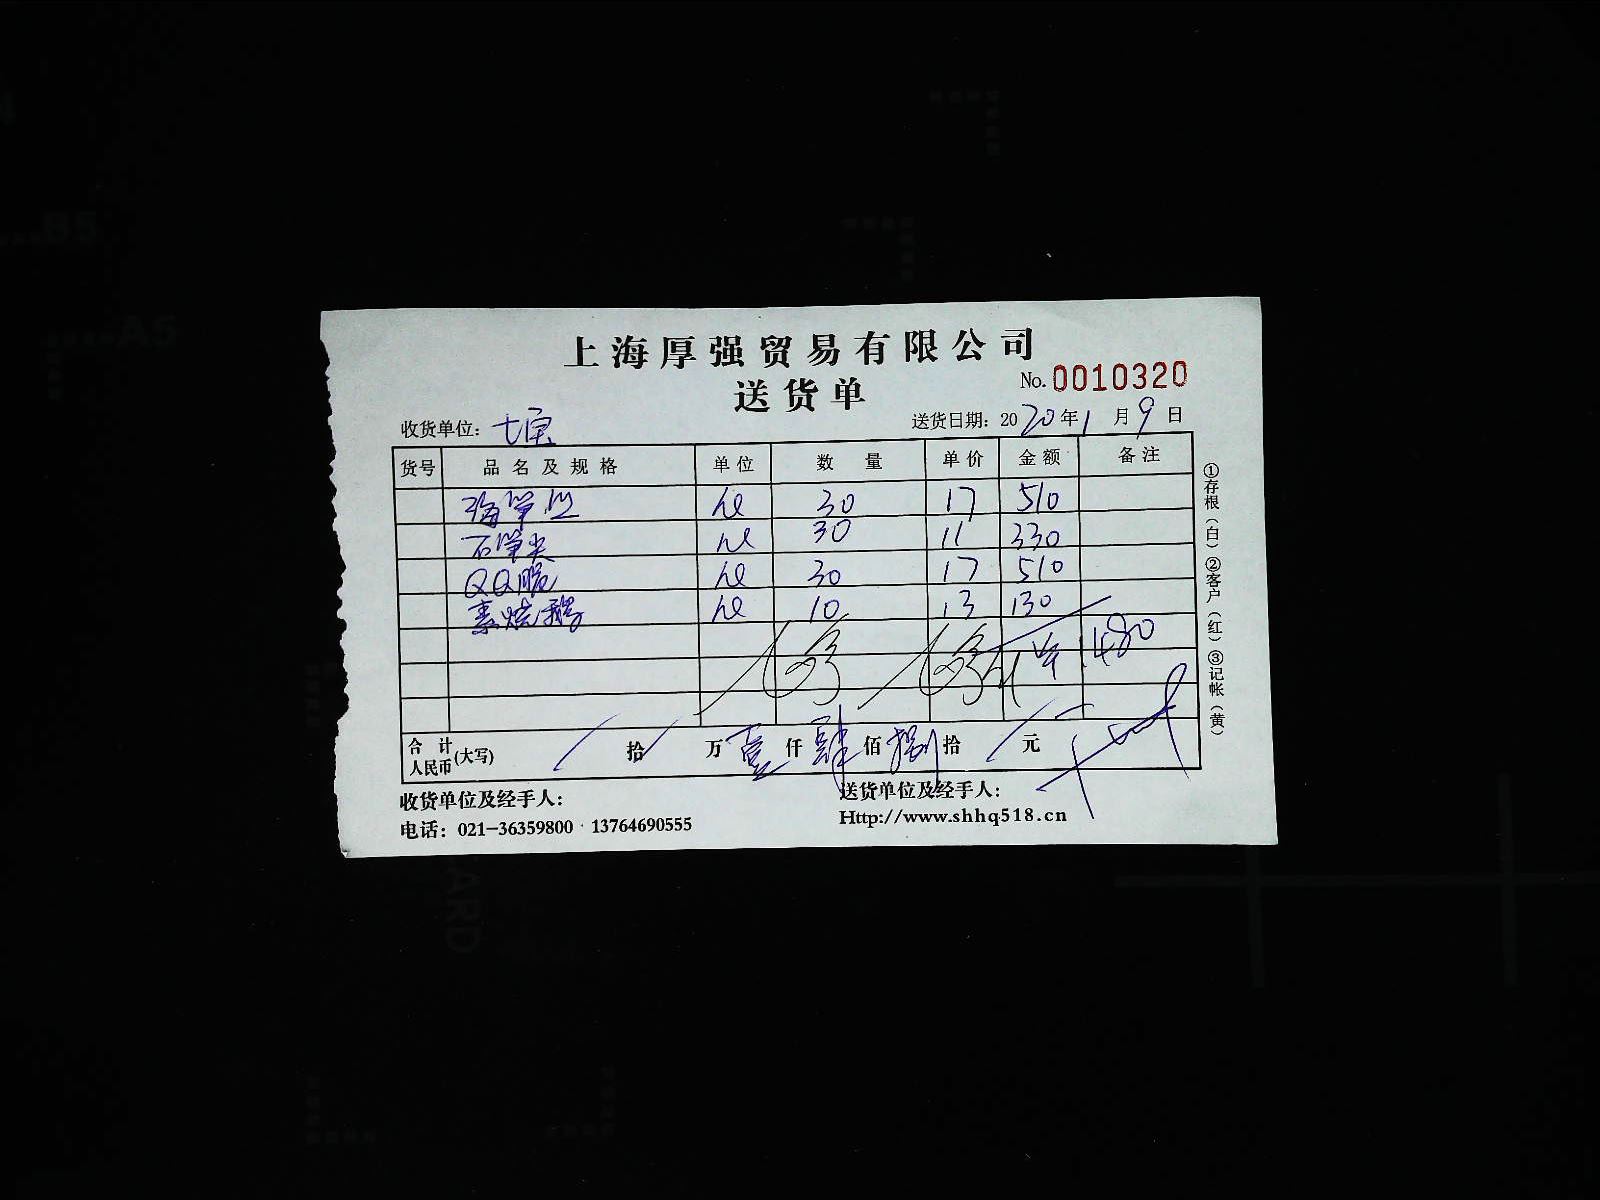 上海厚强贸易有限公司
送货单
No. 0010320
收货单位：七宝
送货日期：2020年1月9日
货号 品名及规格 单位 数量 单价 金额 备注
海笋丝 30 17 510
石笋尖 30 11 330
QQ脆 30 17 510
素烧鹅 10 13 130
1480
合计人民币(大写) / 拾 / 万 壹 仟 肆 佰 捌 拾 / 元
收货单位及经手人：
送货单位及经手人：
电话：021-36359800 13764690555
Http://www.shhq518.cn
①存根（白）②客户（红）③记帐（黄）